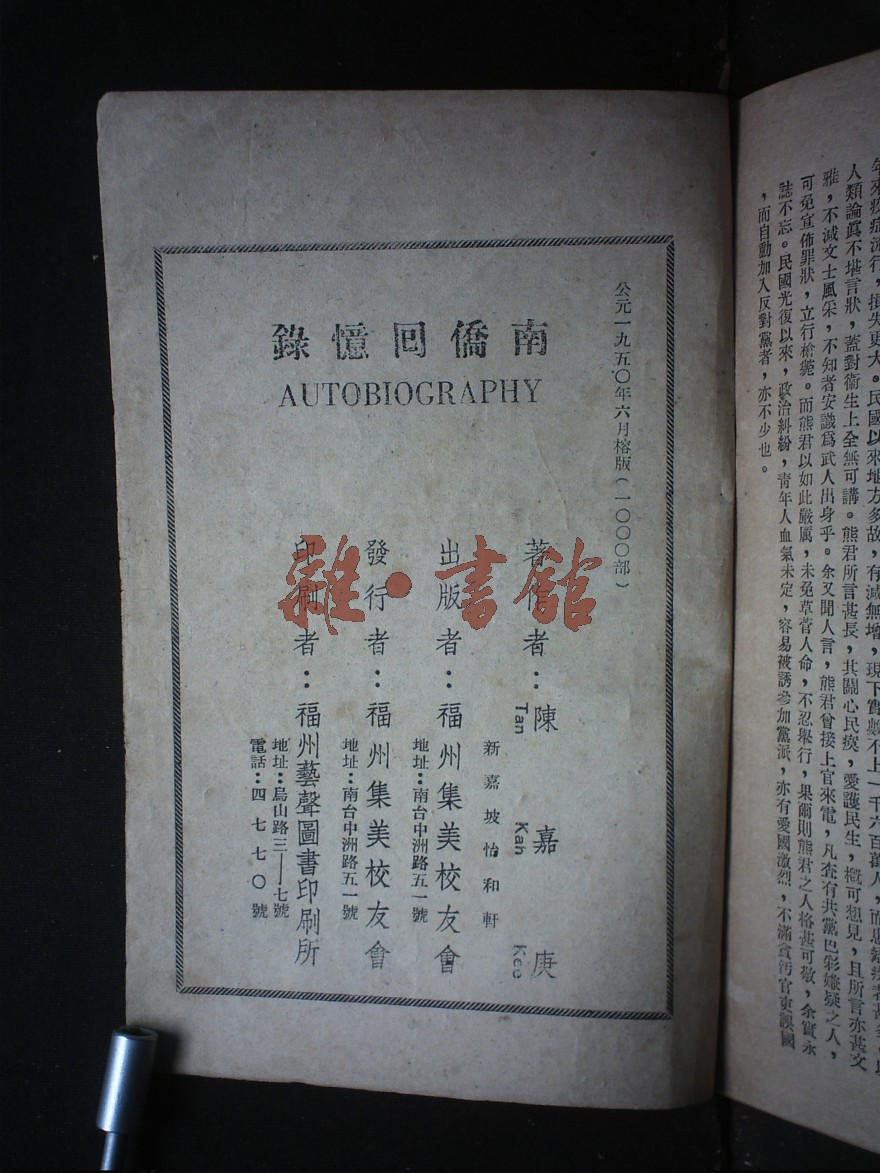 年來疫症流行，損失更大。民國以來地方多故，有減無增，現下實數不上一千六百萬人，而患
人類論眞不堪言狀，蓋對衞生上全無可講。熊君所言甚長，其關心民瘼，愛護民生，槪可想見，且所言亦甚文
雅，不滅文士風采，不知者安識爲武人出身乎。余又聞人言，熊君曾接上官來電，凡查有共黨色彩嫌疑之人，
可免宣佈罪狀，立行槍斃。而熊君以如此嚴厲，未免草菅人命，不忍舉行，果爾則熊君之人格甚可敬，余實永
誌不忘。民國光復以來，政治糾紛，靑年人血氣未定，容易被誘參加黨派，亦有愛國激烈，不滿貪污官吏誤國
，而自動加入反對黨者，亦不少也。
公元一九五〇年六月榕版（一〇〇〇部）
南僑回憶錄
AUTOBIOGRAPHY
著作者：陳嘉庚
Tan Kah Kee
新嘉坡怡和軒
出版者：福州集美校友會
地址：南台中洲路五一號
發行者：福州集美校友會
地址：南台中洲路五一號
印刷者：福州藝聲圖書印刷所
地址：烏山路三一七號
電話：四七七〇號
雜·書館